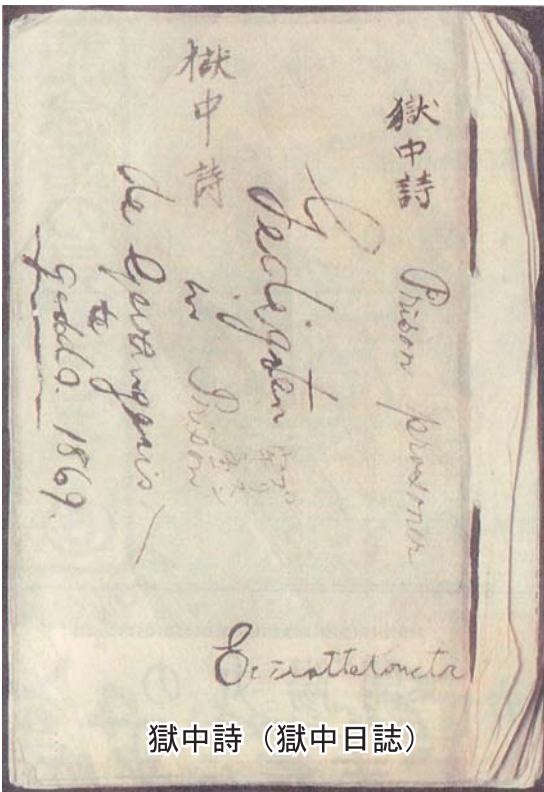 獄中詩
Prison prisoner
Gedigten
in Prison
獄中詩
de Gevangenis
te
1869.
獄中詩（獄中日誌）